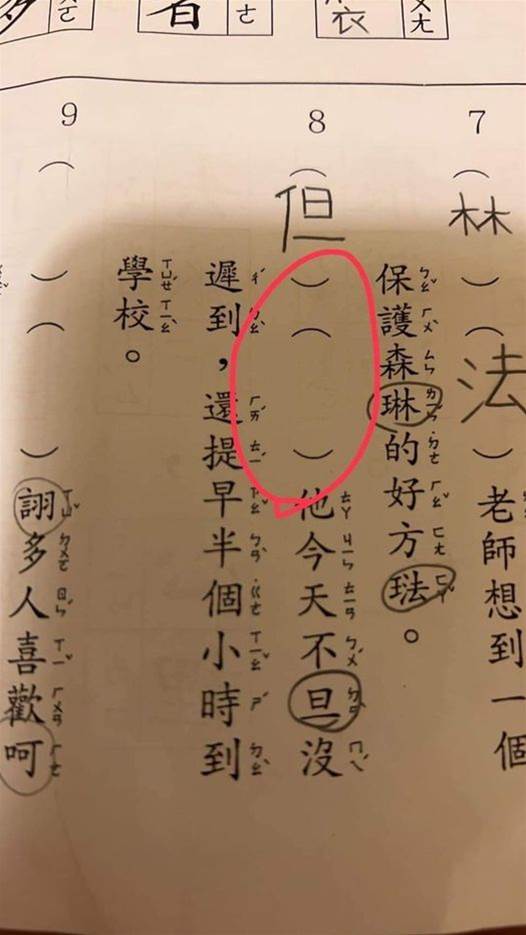 7（林）（法）老師想到一個
保護森琳的好方琺。
8（但）（）他今天不旦沒
遲到，還提早半個小時到
學校。
9（）（）詡多人喜歡呵